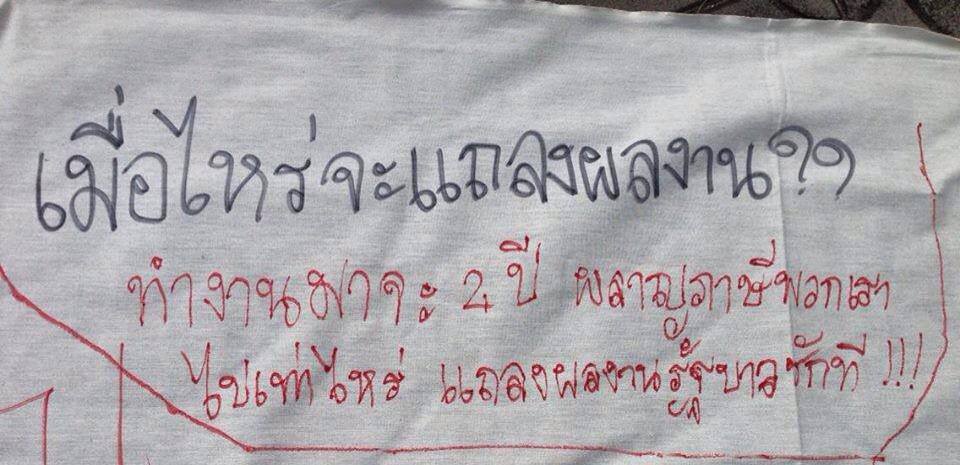 เมื่อไหร่จะแถลงผลงาน??
ทำงานมาจะ 2 ปี ผลาญภาษีพวกเรา
ไปเท่าไหร่ แถลงผลงานรัฐบาลซักที !!!